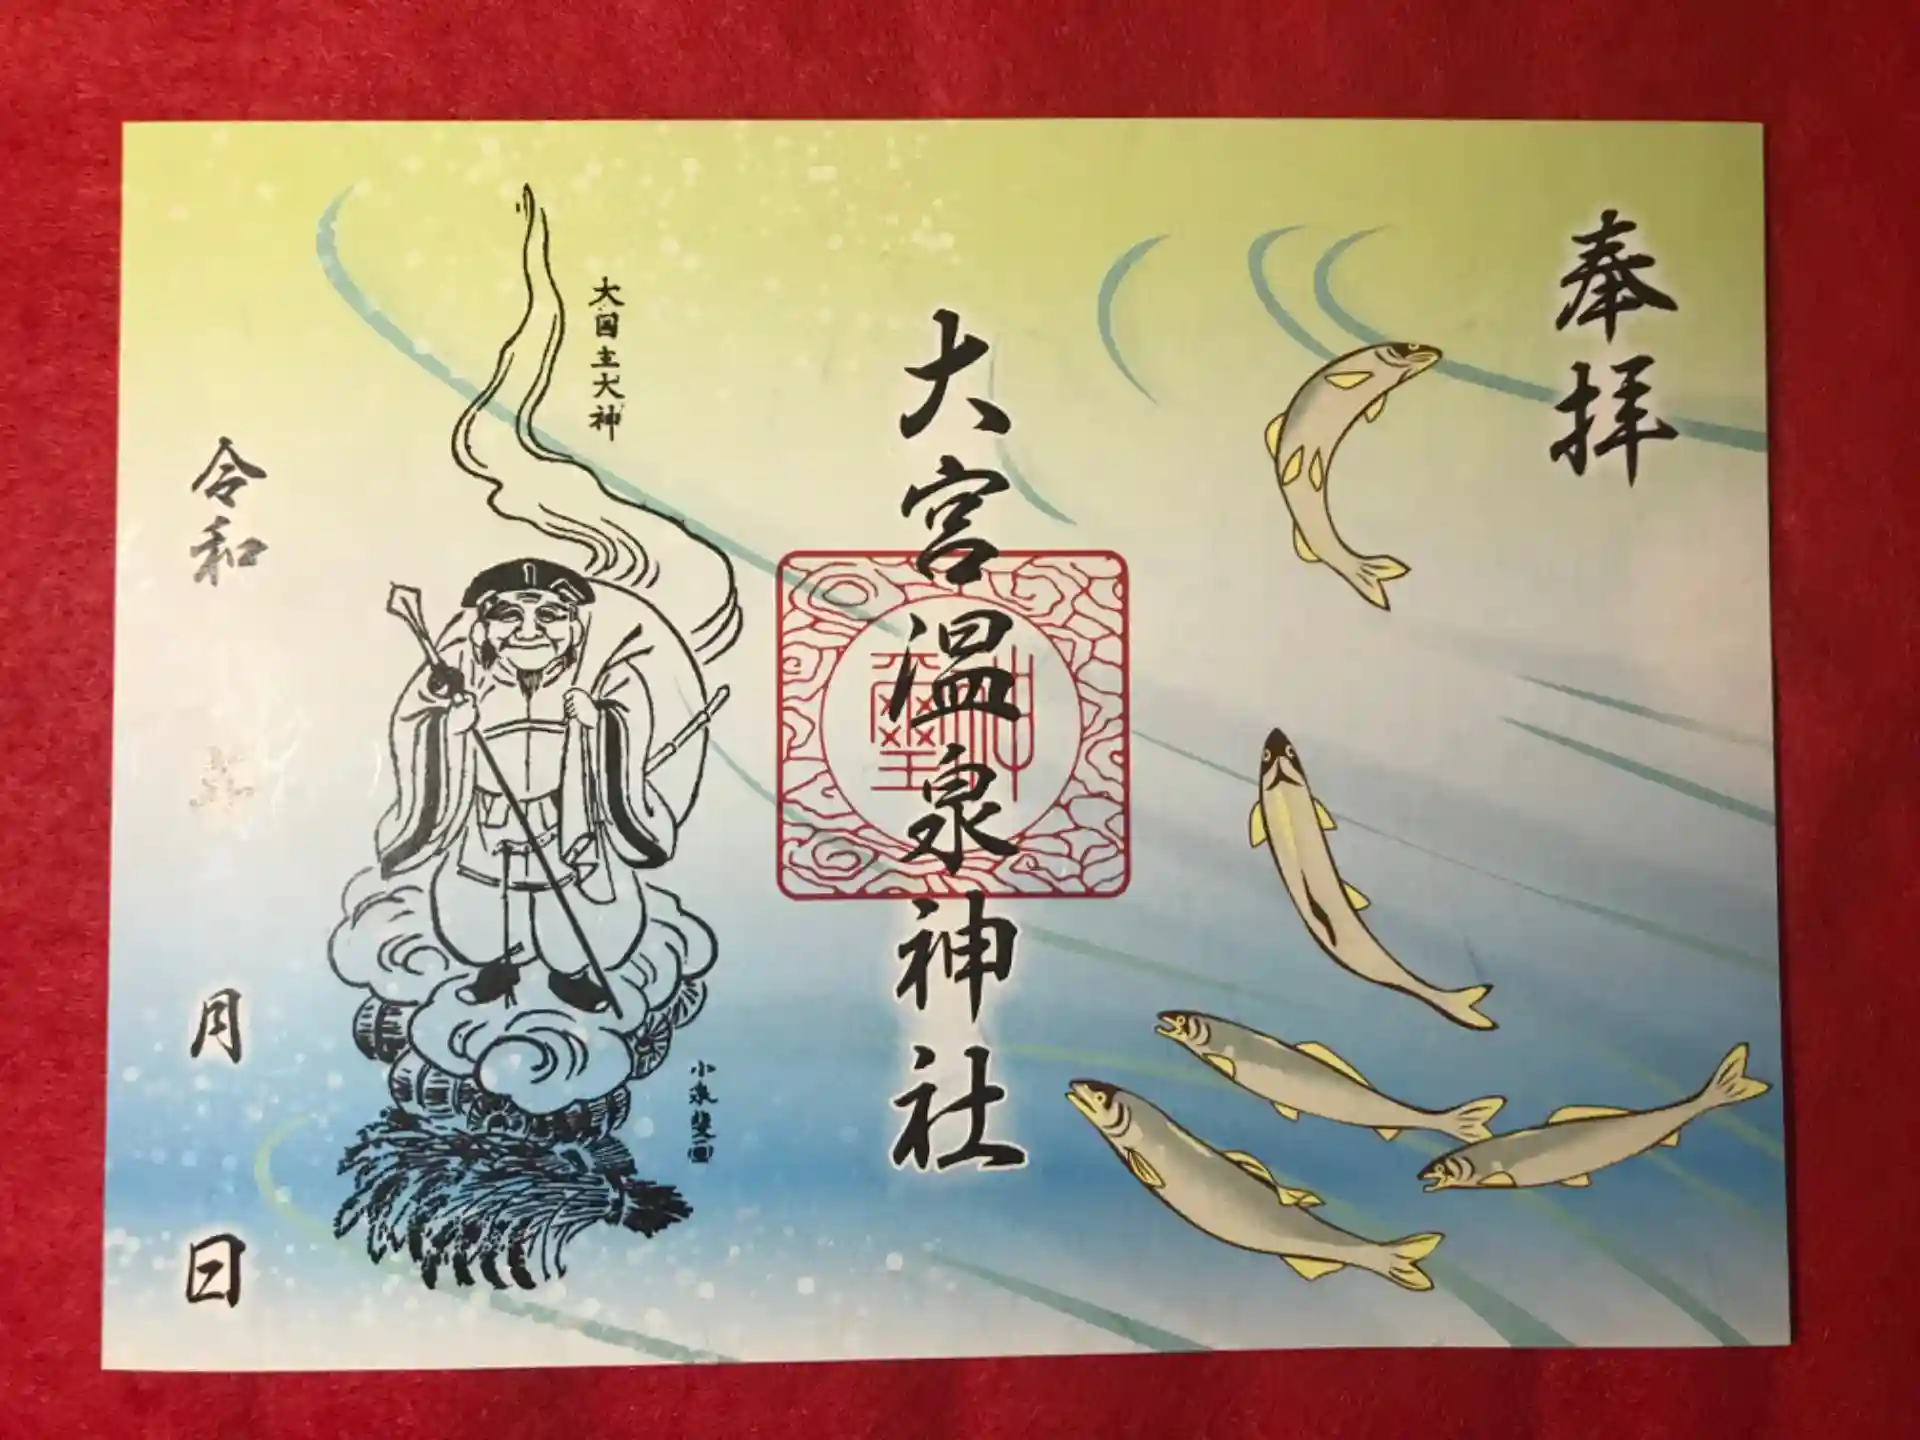 奉拝
大宮温泉神社
神璽
大国主大神
小泉斐画
令和
月
日